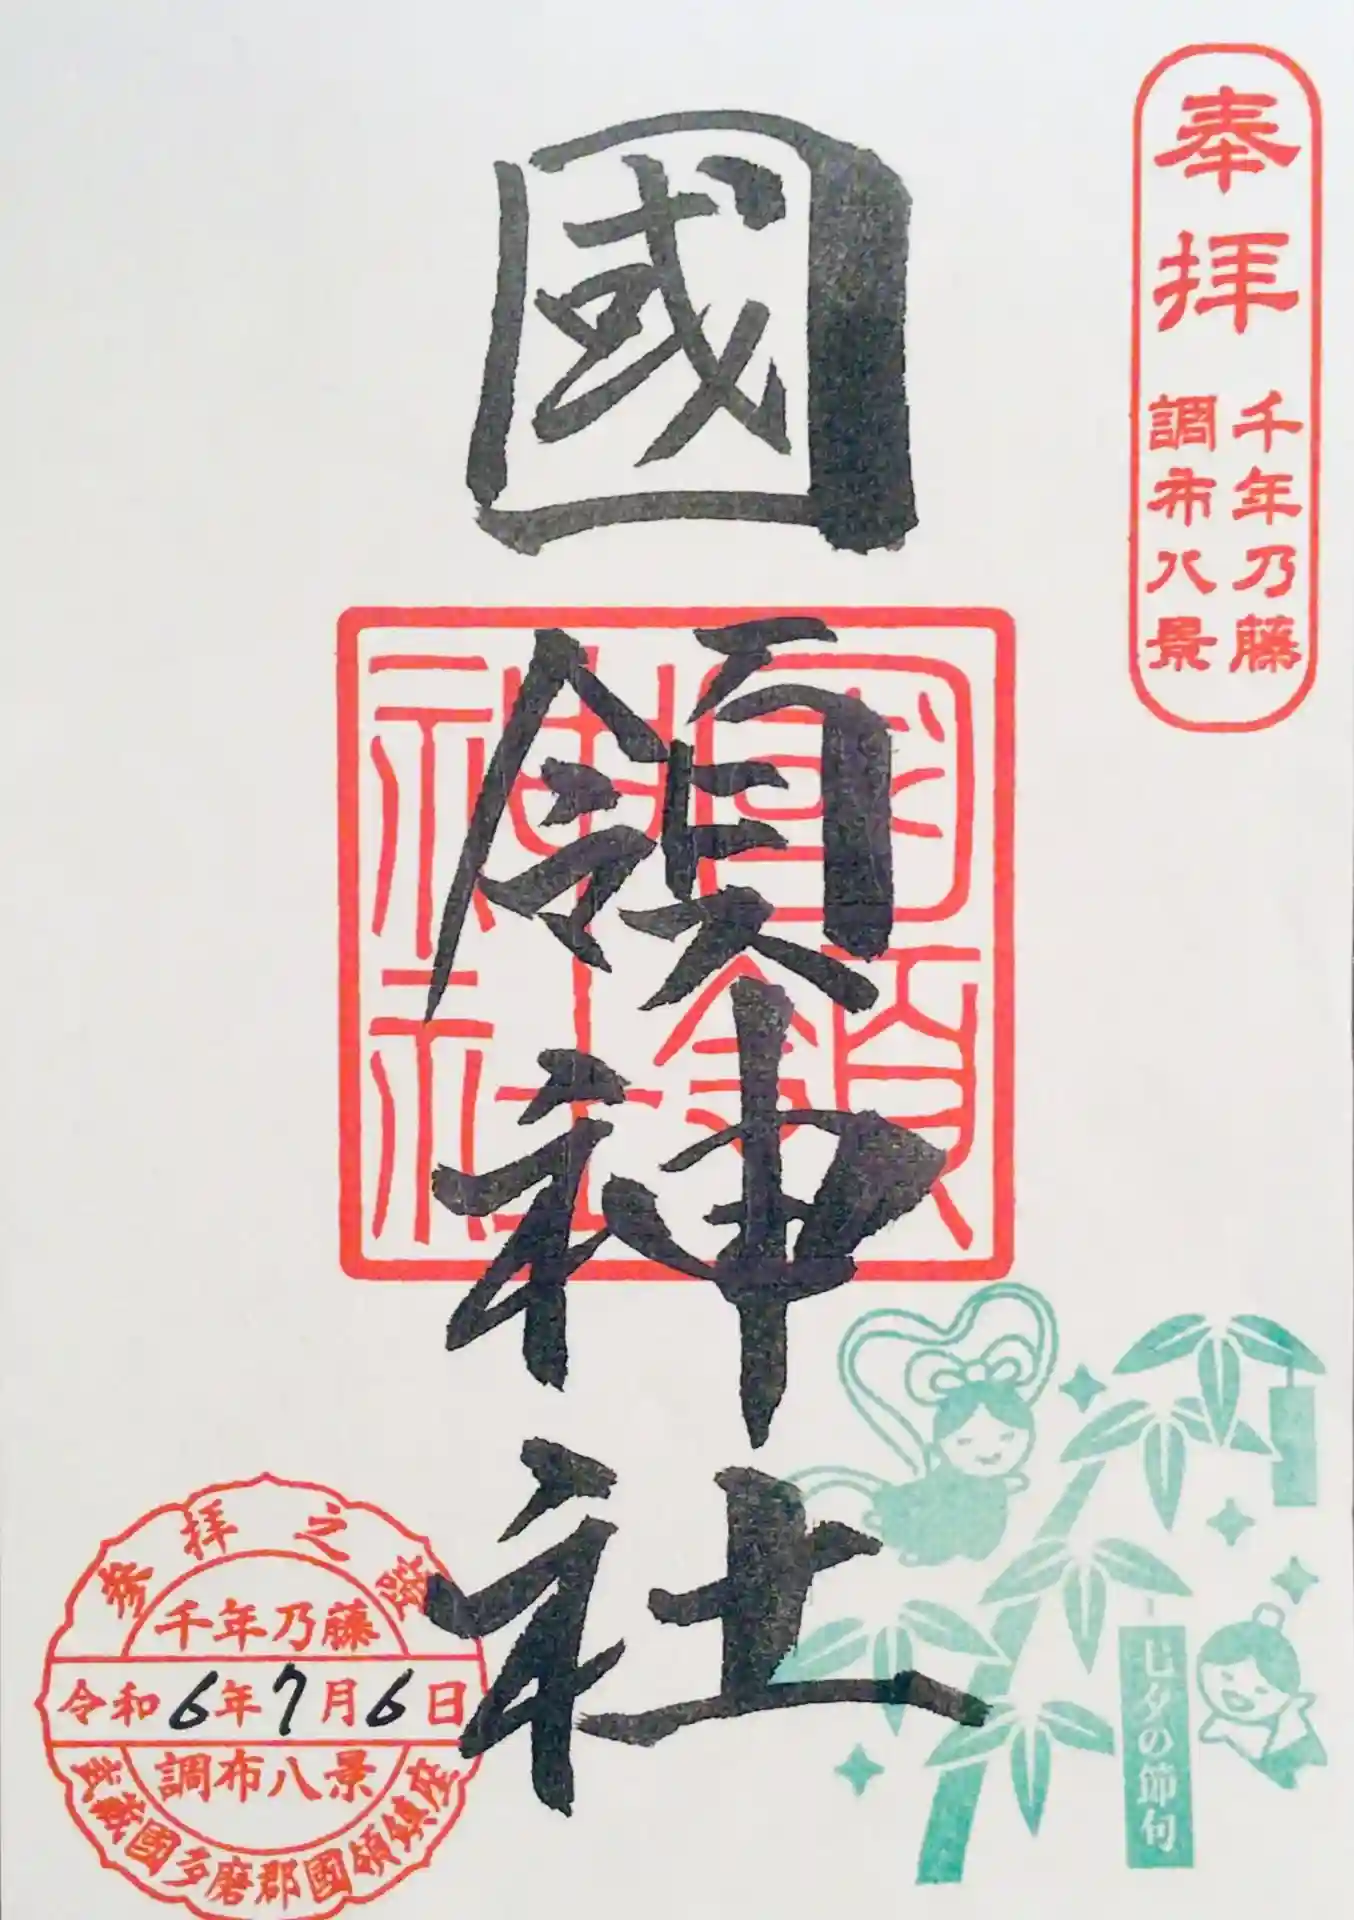 奉拝
千年乃藤
調布八景
國領神社
國領
神社
參拝之證
千年乃藤
令和6年7月6日
調布八景
武蔵國多磨郡國領鎮座
七夕の節句